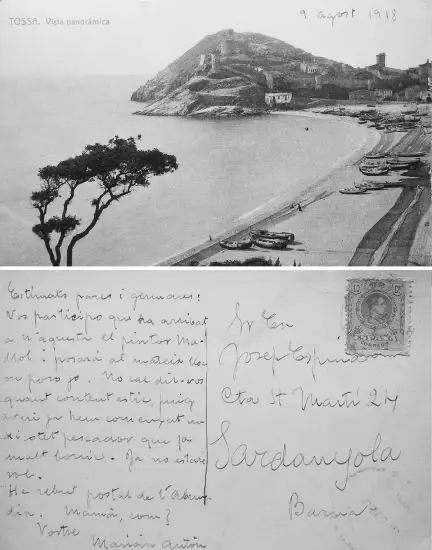 TOSSA. Vista panoràmica
9 agost 1918
Estimats pares i germanes:
Vos participo que ha arribat
a n'aquesta el pintor Ma-
llol i posarà al mateix lloc
on poso jo. No cal dir-vos
quant content estic puig
avui ja hem començat un
xicotet pescador que fa
molt bonic. Ja no estaré
sol.
He rebut postal de l'
dia. Mamà, com?
Vostre
Marián Antón
Sr En
Josep Espindoni
Cta St Martí 24
Sardanyola
Barna
15 C 15
ESPAÑA
CORREOS